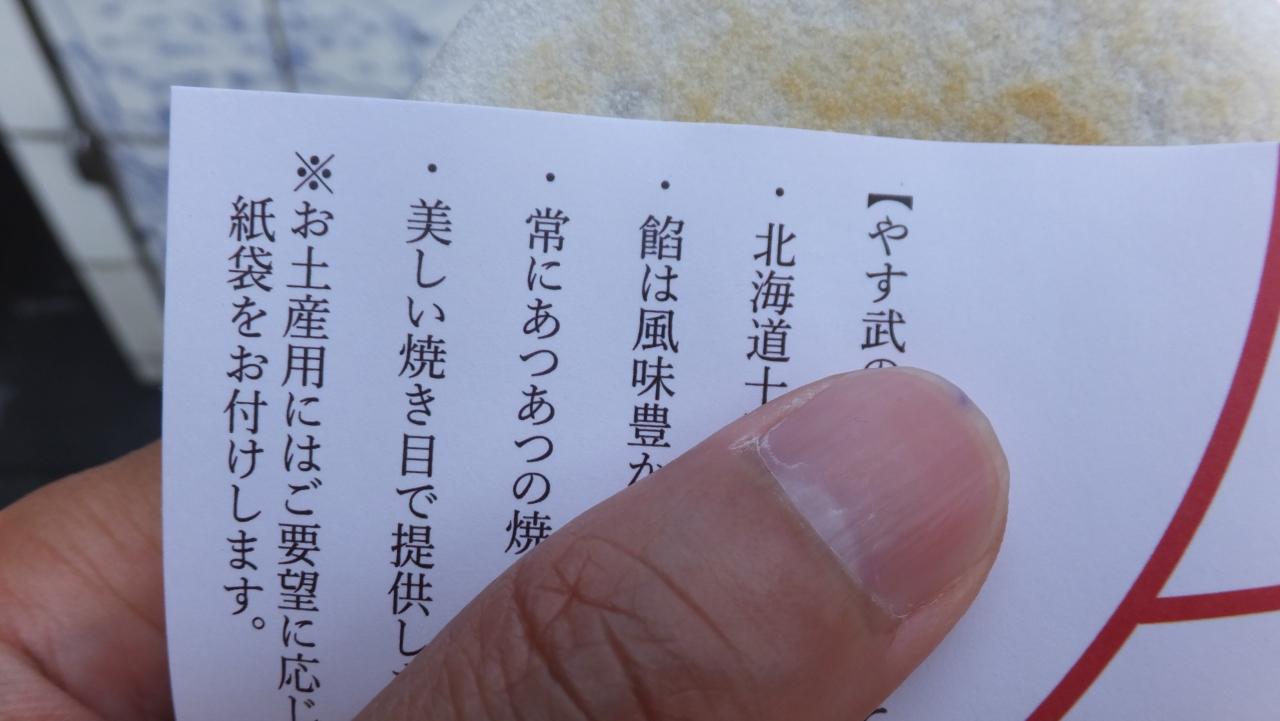 【やす武の
・北海道十
・餡は風味豊か
・常にあつあつの焼
・美しい焼き目で提供し
※お土産用にはご要望に応じ
紙袋をお付けします。